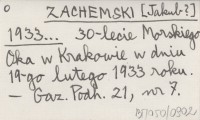 o ZACHEMSKI [Jakub?]
1933... 30-lecie Morskiego
Oka w Krakowie w dniu
19-go lutego 1933 roku.
- Gaz. Podh. 21, nr 7.